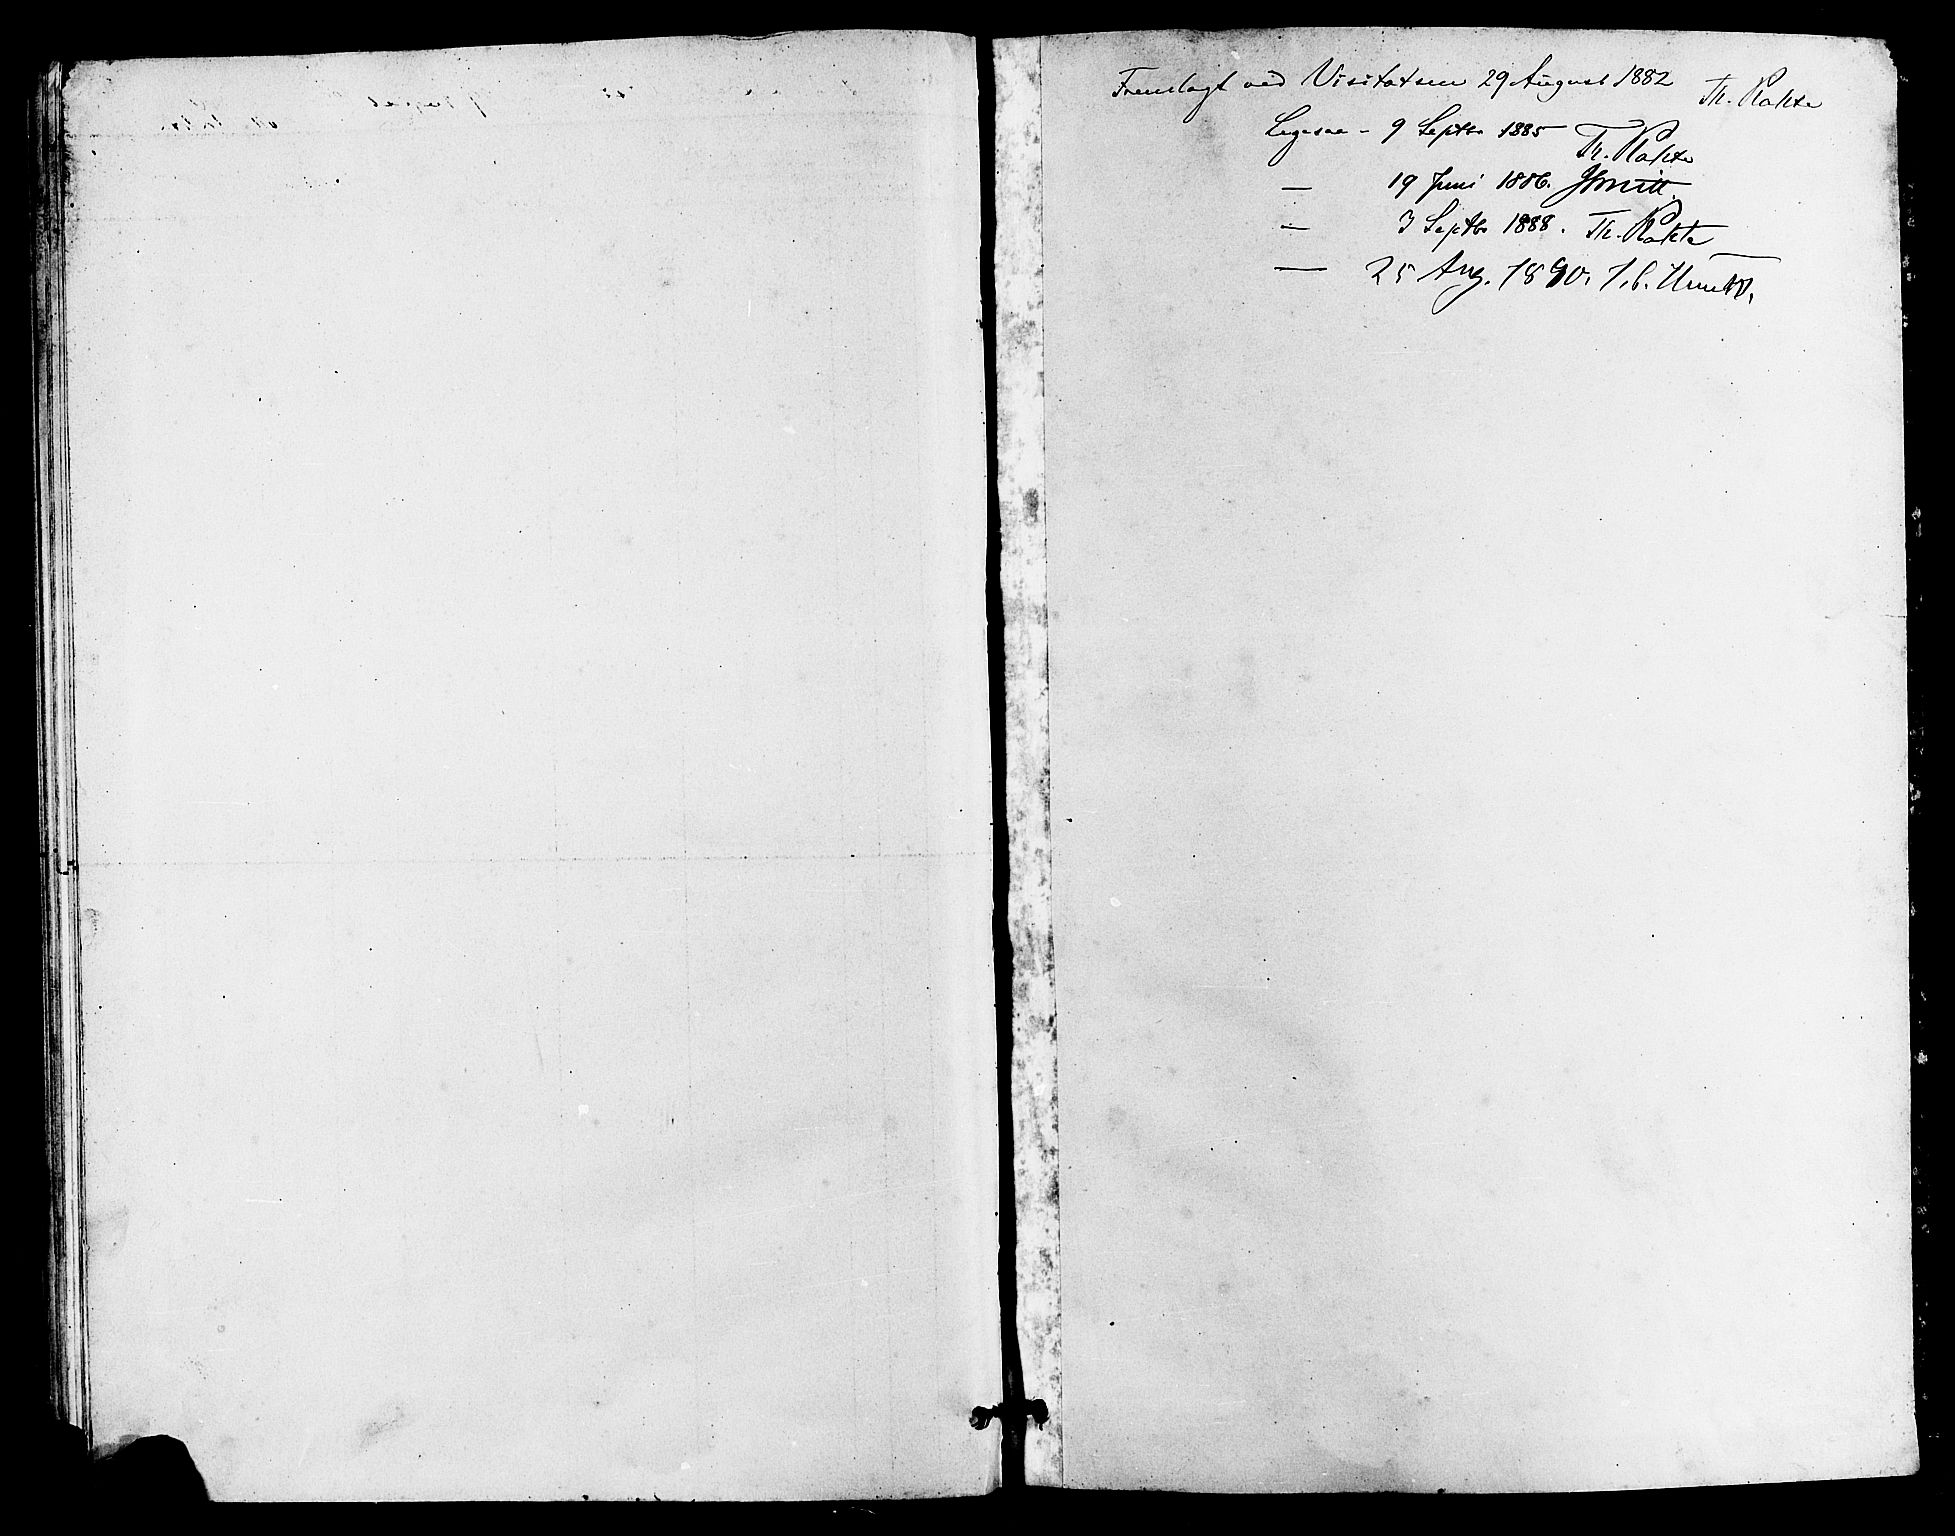 Fremlagt ved Visitatsen 29 August 1882 Th. Rakte
Ligesaa - 9 Septbr 1885 Th. Rakte
— 19 Juni 1886.
— 3 Septbr 1888. Th. Rakte
— 25 Aug. 1890.